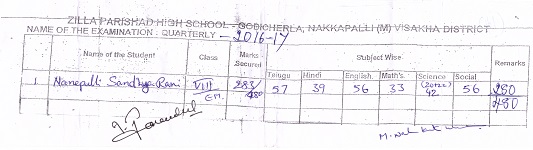 ZILLA PARISHAD HIGH SCHOOL - GODICHERLA, NAKKAPALLI (M) VISAKHA DISTRICT
NAME OF THE EXAMINATION : QUARTERLY - 2016-17
Name of the Student Class Marks Secured Subject Wise Remarks
Telugu Hindi English Math's Science Social
1 Nanepalli Sandhya Rani VIII E.M. 283/480 57 39 56 33 (20+22) 42 56 280/480